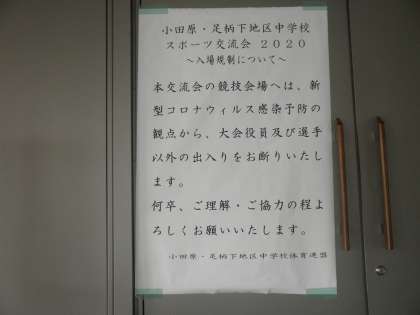 小田原・足柄下地区中学校
スポーツ交流会 2020
～入場規制について～
本交流会の競技会場へは、新
型コロナウィルス感染予防の
観点から、大会役員及び選手
以外の出入りをお断りいたし
ます。
何卒、ご理解・ご協力の程よ
ろしくお願いいたします。
小田原・足柄下地区中学校体育連盟